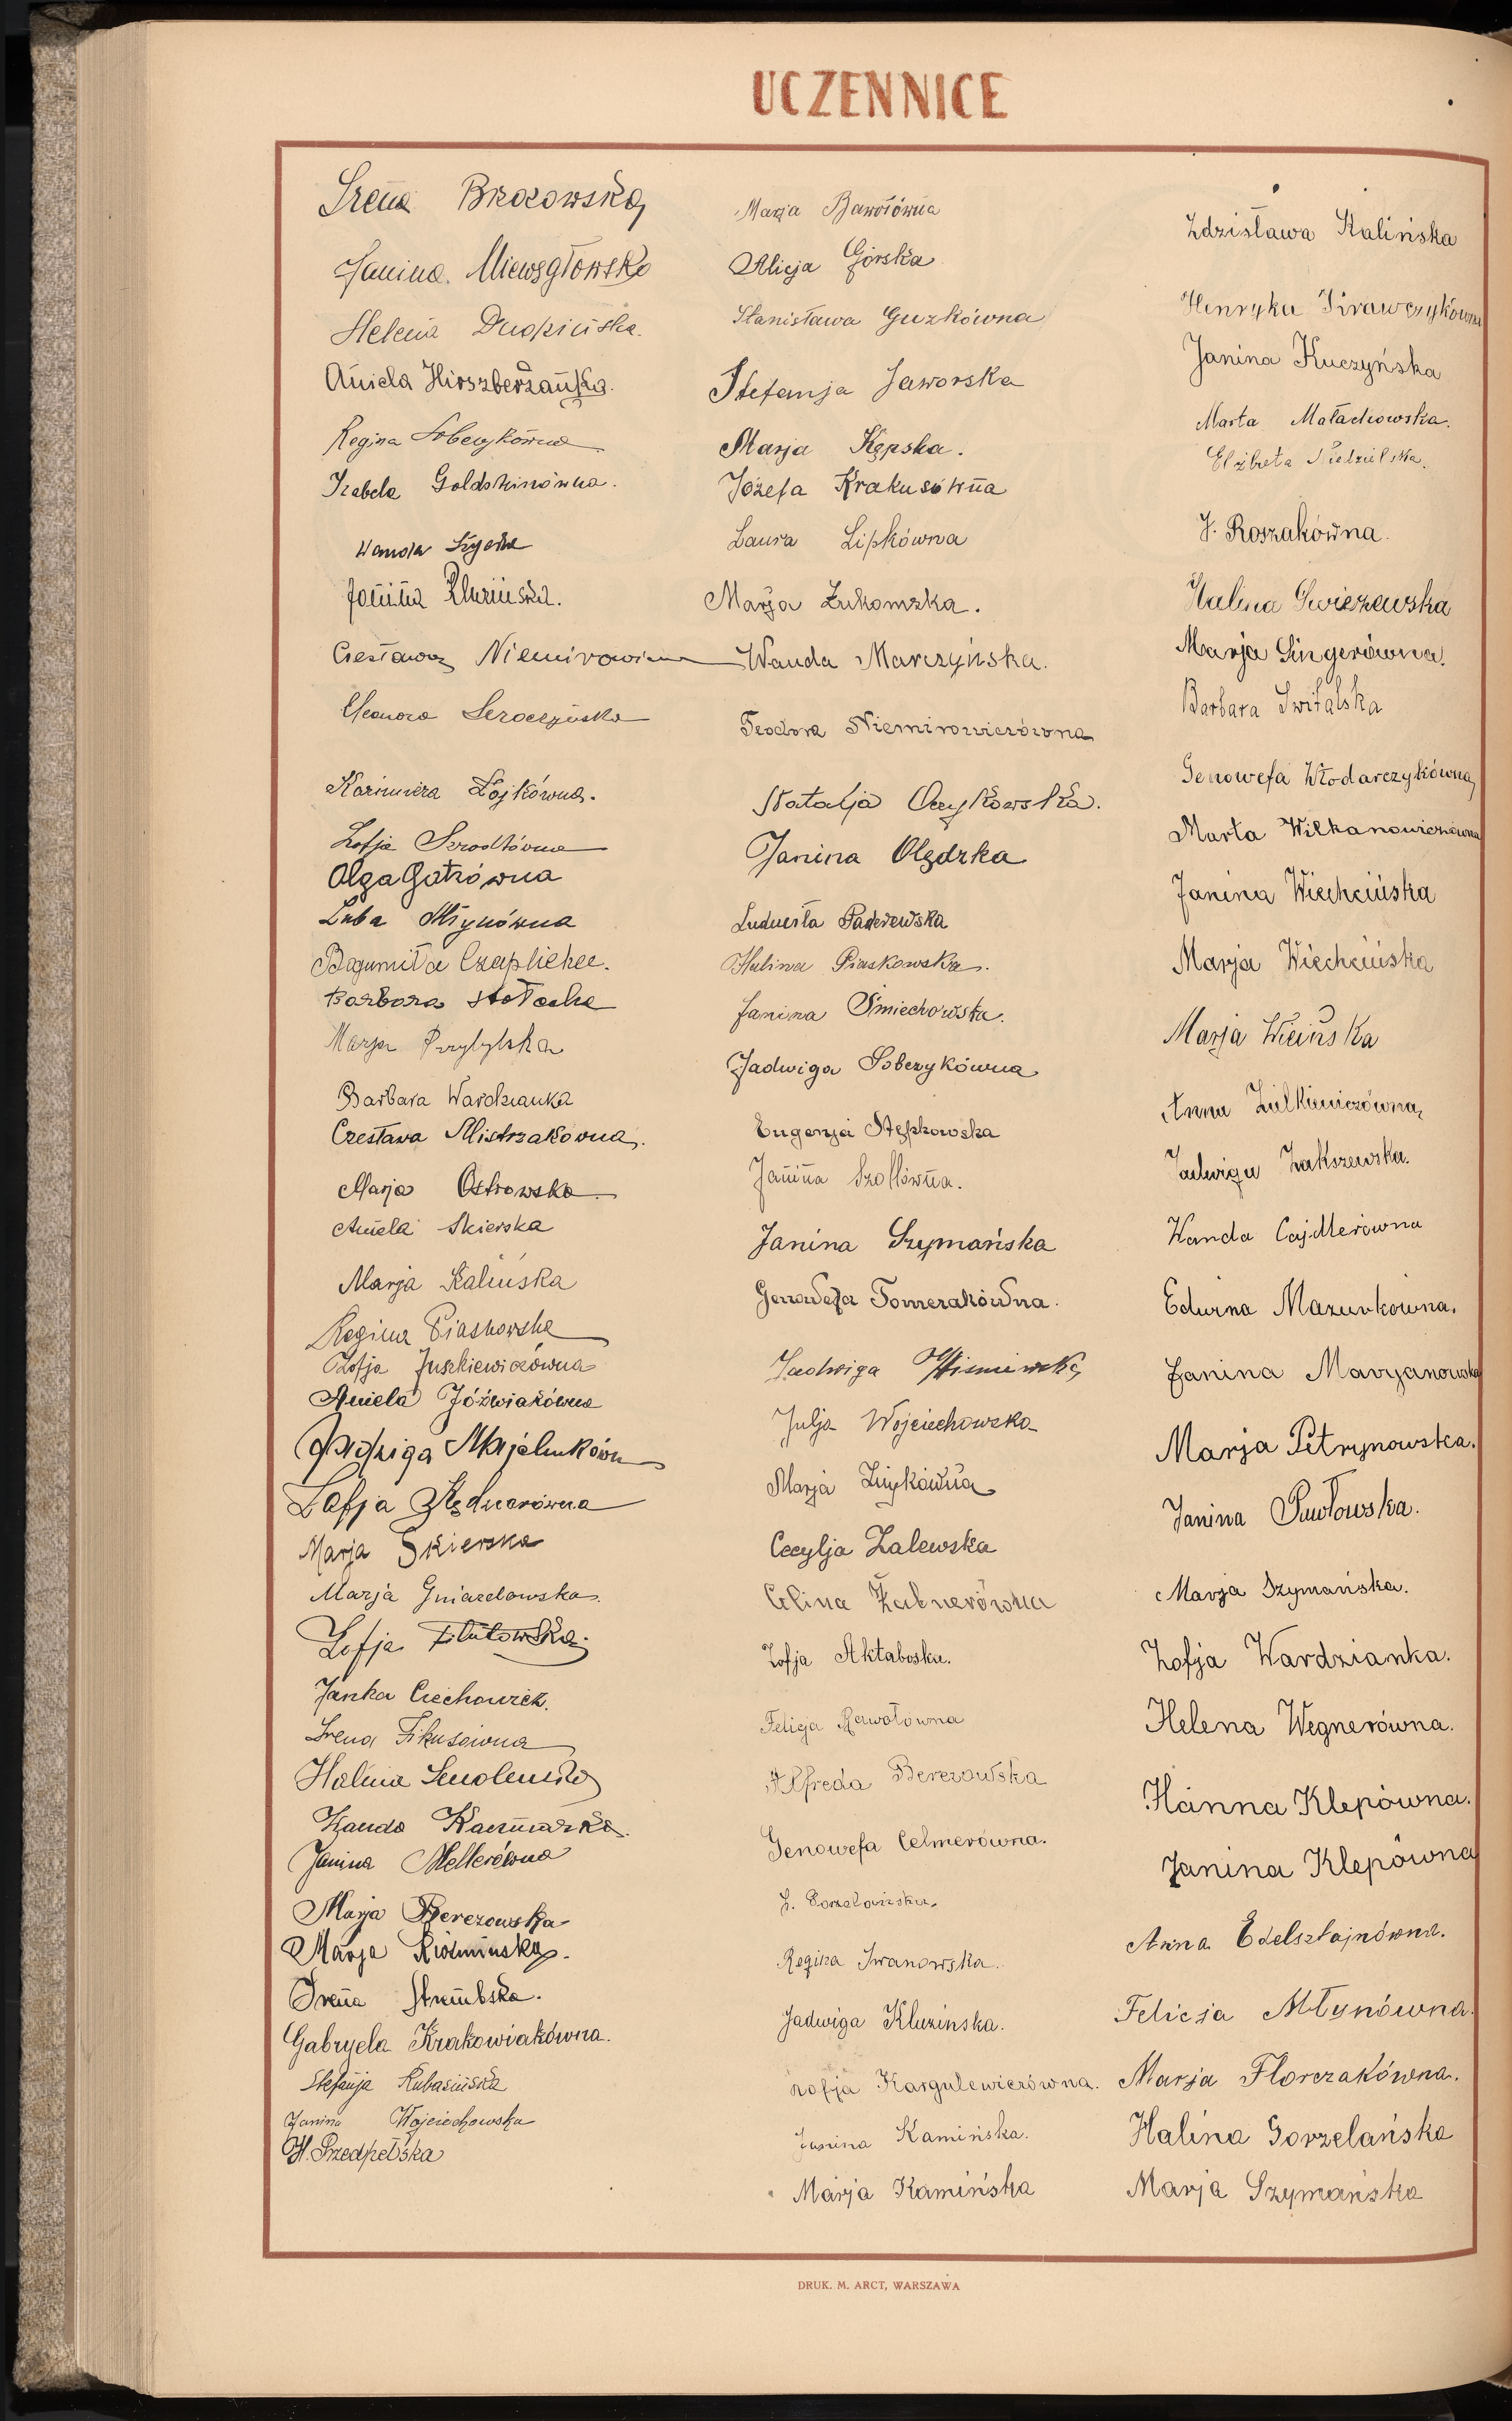 UCZENNICE
Irena Brzozowska
Janina
Helena
Aniela Hirszberżanka.
Regina Sobczykówna
Izabela Goldsztinówna.
Wanda
Janina Kluzińska.
Czesława Niemirowicz
Eleonora Seroczyńska
Kazimiera Łojkówna.
Zofja Szrodtówna
Olga Gatówna
Luba Młynówna
Bogumiła Czaplicka.
Barbara
Marja Przybylska
Barbara Wardzianka
Czesława Mistrzakówna.
Marja Ostrowska
Aniela Skierska
Marja Kalińska
Regina Piaskowska
Zofja Juszkiewiczówna
Aniela Jóźwiakówna
Jadwiga
Zofja Bednarówna
Marja Skierska
Marja Gniazdowska.
Zofja Filutowska.
Janka Ciechowicz.
Irena Fikusówna
Halina Smoleńska
Wanda Kaczmarska.
Janina Mellerówna
Marja Berezowska
Marja Koźmińska.
Irena Strembska.
Gabryela Krakowiakówna.
Stefanja Kubasińska
Janina Wojciechowska
H. Przedpełska
Marja Bawołówna
Alicja Górska
Stanisława Guzkówna
Stefanja Jaworska
Marja Kępska.
Józefa Krakusówna
Laura Lipkówna
Marja Łukomska.
Wanda Marczyńska.
Teodora Niemirowiczówna
Natalja Oczykowska.
Janina Olędzka
Ludwisła Paderewska
Halina Piaskowska.
Janina Śmiechowska.
Jadwiga Sobczykówna
Eugenja Stępkowska
Janina Szollówna.
Janina Szymańska
Genowefa Tomczakówna.
Jadwiga Wiśniewska
Julja Wojciechowska
Marja
Cecylja Zalewska
Celina Żabnerówna
Zofja Aktaboska.
Felicja Bawołówna
Alfreda Berezowska
Genowefa Celmerówna.
Z. Gorzelańska.
Regina Iwanowska.
Jadwiga Kluzińska.
Zofja Kargulewiczówna.
Janina Kamińska.
Marja Kamińska
Zdzisława Kalińska
Henryka Krawczykówna
Janina Kuczyńska
Marta Małachowska.
Elżbieta Niedzielska.
J. Roszakówna.
Halina Świeżewska
Marja Singerówna.
Barbara Świtalska
Genowefa Włodarczykówna
Marta Wilkanowiczówna
Janina Wiechcińska
Marja Wiechcińska
Marja Wicińska
Anna Zielkiewiczówna
Jadwiga Zakszewska.
Wanda Cajdlerówna
Edwina Mazurkówna.
Janina Maryanowska
Marja Petrynowska.
Janina Pawłowska.
Marja Szymańska.
Zofja Wardzianka.
Helena Wegnerówna.
Hanna Klepówna.
Janina Klepówna
Anna Edelsztajnówna.
Felicja Młynówna.
Marja Florczakówna.
Halina Gorzelańska
Marja Szymańska
DRUK. M. ARCT, WARSZAWA